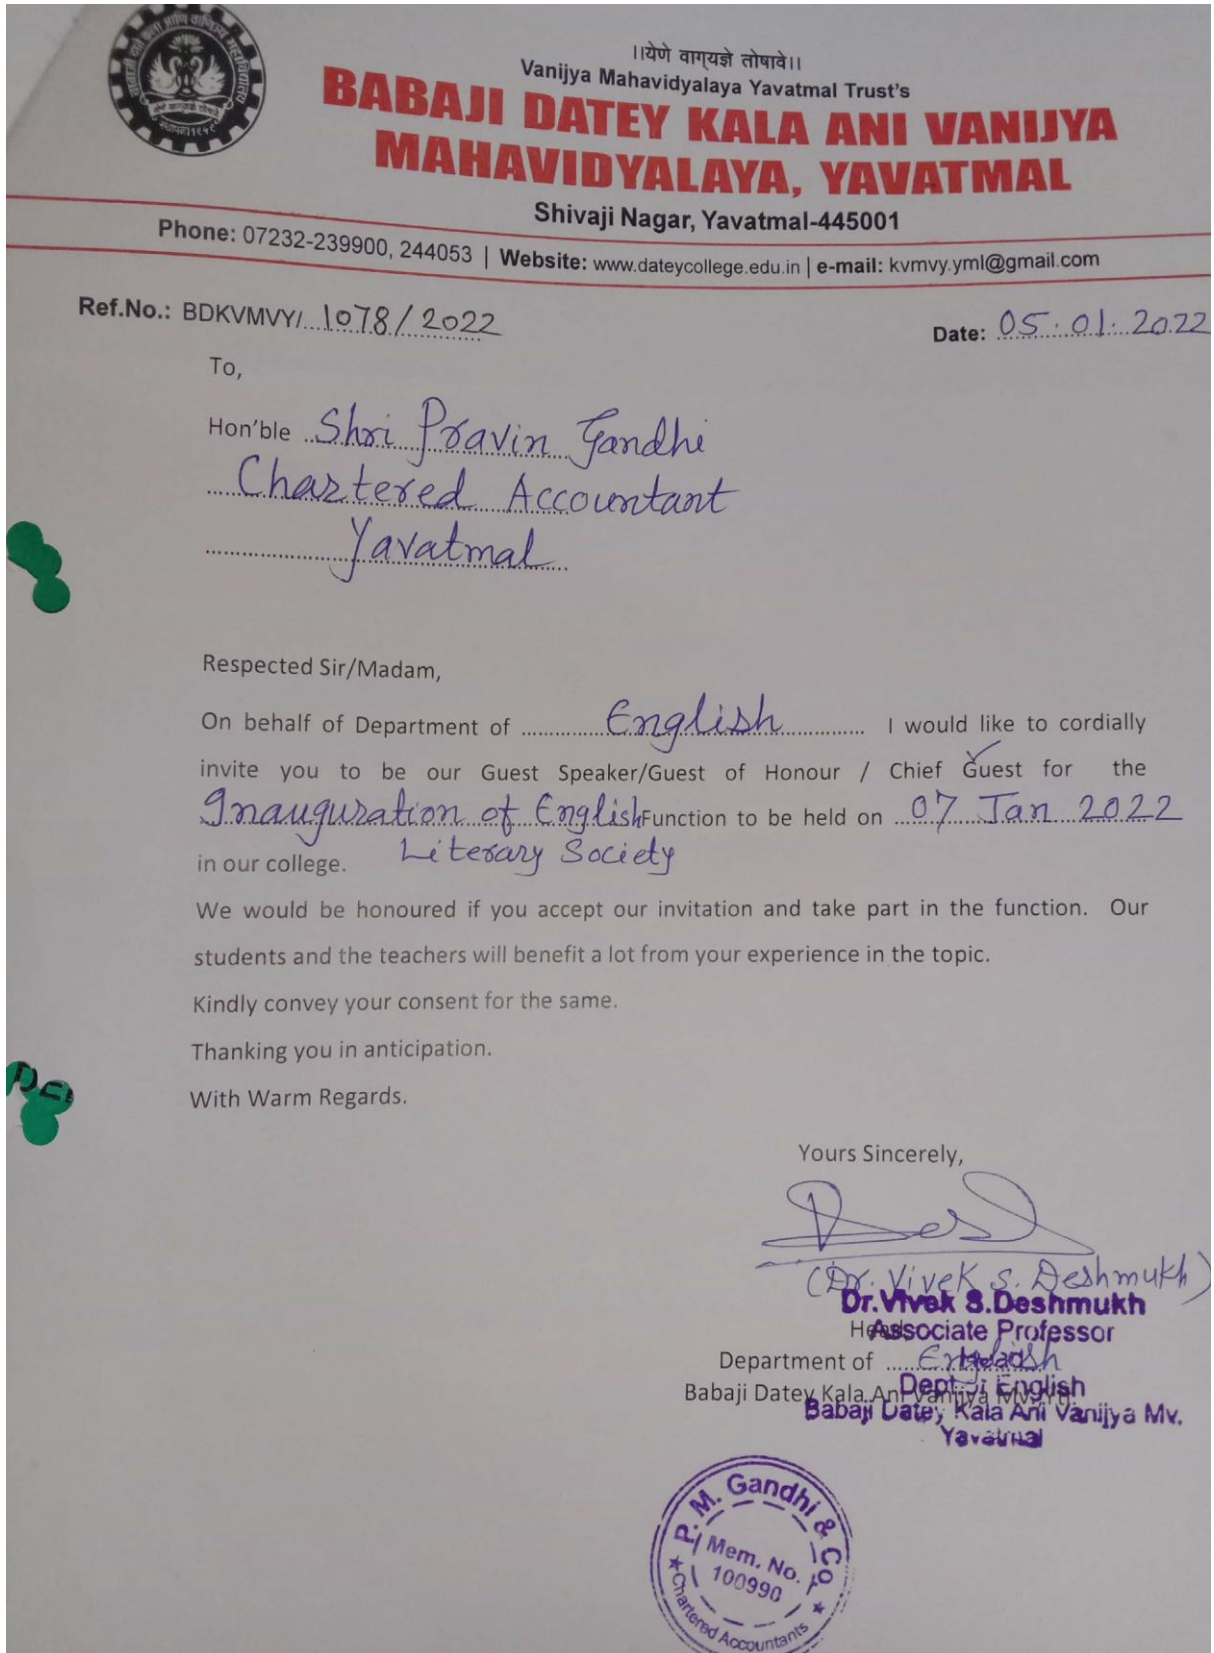 बाबाजी दाते कला आणि वाणिज्य महाविद्यालय
येणे वाग्यज्ञे तोषावे
स्थापना १९५९
।।येणे वाग्‌यज्ञे तोषावे।।
Vanijya Mahavidyalaya Yavatmal Trust's
BABAJI DATEY KALA ANI VANIJYA
MAHAVIDYALAYA, YAVATMAL
Shivaji Nagar, Yavatmal-445001
Phone: 07232-239900, 244053 | Website: www.dateycollege.edu.in | e-mail: kvmvy.yml@gmail.com
Ref.No.: BDKVMVY/ 1078/2022
Date: 05.01.2022
To,
Hon'ble Shri Pravin Gandhi
Chartered Accountant
Yavatmal
Respected Sir/Madam,
On behalf of Department of English I would like to cordially
invite you to be our Guest Speaker/Guest of Honour / Chief Guest for the
Inauguration of English Function to be held on 07 Jan 2022
in our college. Literary Society
We would be honoured if you accept our invitation and take part in the function. Our
students and the teachers will benefit a lot from your experience in the topic.
Kindly convey your consent for the same.
Thanking you in anticipation.
With Warm Regards.
Yours Sincerely,
(Dr. Vivek S. Deshmukh)
Dr.Vivek S.Deshmukh
Head,
Associate Professor
Department of English
Head
Dept of English
Babaji Datey Kala Ani Vanijya Mv.
Babaji Datey Kala Ani Vanijya Mv.
Yavatmal
P. M. Gandhi & Co.
Mem. No.
100990
Chartered Accountants